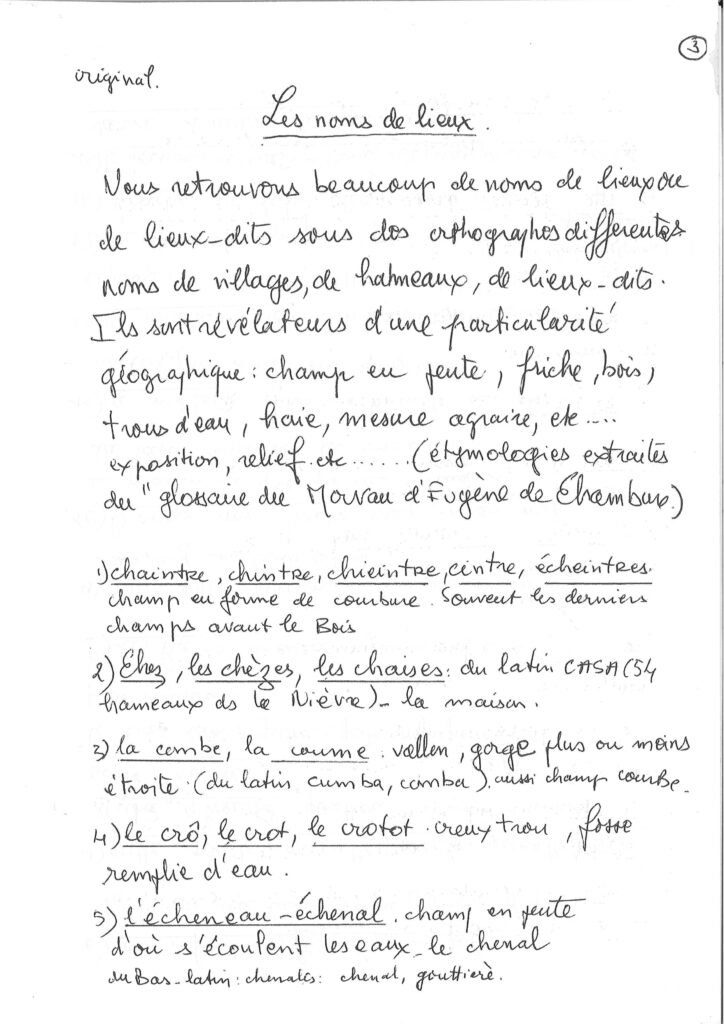 3
original.
Les noms de lieux.
Nous retrouvons beaucoup de noms de lieux ou
de lieux-dits sous des orthographes différentes
noms de villages, de hameaux, de lieux-dits.
Ils sont révélateurs d'une particularité
géographique : champ en pente, friche, bois,
trous d'eau, haie, mesure agraire, etc....
exposition, relief etc...... (étymologies extraites
du "glossaire du Morvan d'Eugène de Chambure)
1) chaintre, chintre, chieintre, cintre, écheintres.
champ en forme de courbure. Souvent les derniers
champs avant le Bois
2) Chez, les chèzes, les chaises : du latin CASA (54
hameaux ds la Nièvre) - la maison.
3) la combe, la coume : vallon, gorge plus ou moins
étroite. (du latin cumba, comba). aussi champ courbe.
4) le crô, le crot, le crotot. creux trou, fosse
remplie d'eau.
5) l'écheneau - échenal. champ en pente
d'où s'écoulent les eaux - le chenal
du Bas-latin : chenales : chenal, gouttière.